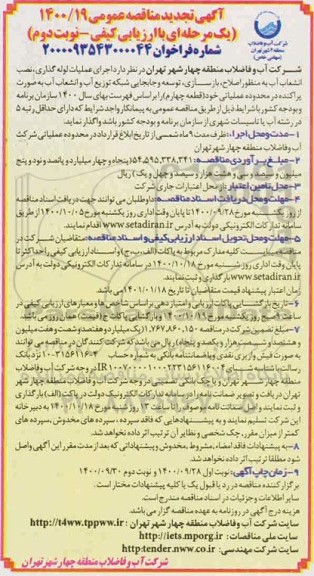 آگهی تجدید مناقصه عمومی ۱۴۰۰/۱۹
(یک مرحله‌ای با ارزیابی کیفی – نوبت دوم)
شماره فراخوان ۲۰۰۰۰۹۳۵۴۳۰۰۰۰۴۴
شرکت آب و فاضلاب
منطقه ۴ شهر تهران
(سهامی خاص)
شرکت آب و فاضلاب منطقه چهار شهر تهران در نظر دارد اجرای عملیات لوله گذاری، نصب
انشعاب آب به منظور اصلاح، بازسازی، توسعه و جابجایی شبکه توزیع آب و انشعاب آب به صورت
پراکنده در محدوده عملیاتی خود (قطعه چهارم) را بر اساس فهرست بهای سال ۱۴۰۰ سازمان برنامه
و بودجه کشور با شرایط ذیل از طریق مناقصه عمومی به پیمانکار واجد شرایط که دارای حداقل رتبه ۵
در رشته آب یا تاسیسات شهری از سازمان برنامه و بودجه کشور باشد واگذار نماید.
۱- مدت و محل اجرا: ظرف مدت ۹ ماه شمسی از تاریخ ابلاغ قرارداد در محدوده عملیاتی شرکت
آب و فاضلاب منطقه چهار شهر تهران
۲- مبلغ برآوردی مناقصه: ۵۴,۵۹۵,۳۳۸,۳۴۱ (پنجاه و چهار میلیارد و پانصد و نود و پنج
میلیون و سیصد و سی و هشت هزار و سیصد و چهل و یک) ریال
۳- محل تامین اعتبار: از محل اعتبارات جاری شرکت
۴- مهلت و محل دریافت اسناد مناقصه: داوطلبان می توانند جهت دریافت اسناد مناقصه
از روز یکشنبه مورخ ۱۴۰۰/۰۹/۲۸ تا پایان وقت اداری روز یکشنبه مورخ ۱۴۰۰/۱۰/۰۵ از طریق
سامانه تدارکات الکترونیکی دولت به آدرس www.setadiran.ir اقدام نمایند.
۵- مهلت و محل تحویل اسناد ارزیابی کیفی و اسناد مناقصه: متقاضیان شرکت در
مناقصه میبایست کلیه مدارک مربوط به پاکات (الف، ب، ج) و اسناد ارزیابی کیفی را حداکثر تا
پایان وقت اداری روز شنبه مورخ ۱۴۰۰/۱۰/۱۸ در سامانه تدارکات الکترونیکی دولت به آدرس
www.setadiran.ir بارگذاری و ثبت نمایند.
زمان اعتبار پیشنهاد قیمت متقاضیان تا تاریخ ۱۴۰۱/۰۱/۱۸ می باشد
۶- تاریخ بازگشایی پاکات ارزیابی و امتیازدهی براساس شاخص ها و معیارهای ارزیابی کیفی در
۷- مبلغ تضمین شرکت در مناقصه ۱,۷۶۷,۸۶۰,۱۵۰ (یک میلیارد و هفتصد و شصت و هفت میلیون
و هشتصد و شصت هزار و یکصد و پنجاه) ریال می باشد که شرکت کنندگان در مناقصه می توانند
به صورت فیش واریزی نقدی و یا ضمانتنامه بانکی به شماره حساب
در وجه شرکت آب و فاضلاب
منطقه چهار شهر تهران و یا چک بانکی تضمینی در وجه شرکت آب و فاضلاب منطقه چهار شهر
این شرکت تسلیم نمایند و به پیشنهادهایی که فاقد سپرده، سپرده های مخدوش، سپرده های
کمتر از میزان مقرر، چک شخصی و نظایر آن ترتیب اثر داده نخواهد شد.
۸- به پیشنهادات فاقد امضاء، مشروط، مخدوش و پیشنهاداتی که بعد از مدت مقرر این آگهی واصل
شود مطلقا ترتیب اثر داده نخواهد شد.
۹- زمان چاپ آگهی: نوبت اول ۱۴۰۰/۰۹/۲۸ و نوبت دوم ۱۴۰۰/۰۹/۳۰
برگزار کننده مناقصه در رد یا قبول یک یا کلیه پیشنهادات مختار است.
سایر اطلاعات و جزئیات در اسناد مناقصه مندرج است.
هزینه درج آگهی در روزنامه به عهده مناقصه گزار می باشد.
سایت شرکت آب و فاضلاب منطقه چهار شهر تهران: http://t4ww.tppww.ir
سایت ملی مناقصات: http://iets.mporg.ir
سایت شرکت مهندسی: http:tender.nww.co.ir
شرکت آب و فاضلاب منطقه چهار شهر تهران